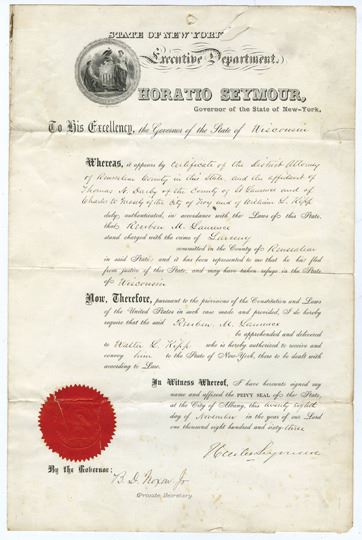 STATE OF NEW YORK
Executive Department.
HORATIO SEYMOUR,
Governor of the State of New-York,
To His Excellency, the Governor of the State of Wisconsin
Whereas, it appears by Certificate of the District Attorney
of Rensselaer County in this State, and the affidavit of
Thomas N. of the County of St Lawrence and of
Charles of the City of Troy and of William L. Kipp
duly authenticated, in accordance with the Laws of this State,
that Reuben M. Lawrence
stand charged with the crime of Larceny
committed in the County of Rensselaer
in said State; and it has been represented to me that he has fled
from justice of this State, and may have taken refuge in the State
of Wisconsin
Now, Therefore, pursuant to the provisions of the Constitution and Laws
of the United States in such case made and provided, I do hereby
require that the said Reuben M. Lawrence
be apprehended and delivered
to Walter L. Kipp who is hereby authorized to receive and
convey him to the State of New-York, there to be dealt with
according to Law.
In Witness Whereof, I have hereunto signed my
name and affixed the PRIVY SEAL of the State,
at the City of Albany, this twenty eighth
day of November in the year of our Lord
one thousand eight hundred and sixty-three
Horatio Seymour
By the Governor:
Private Secretary.